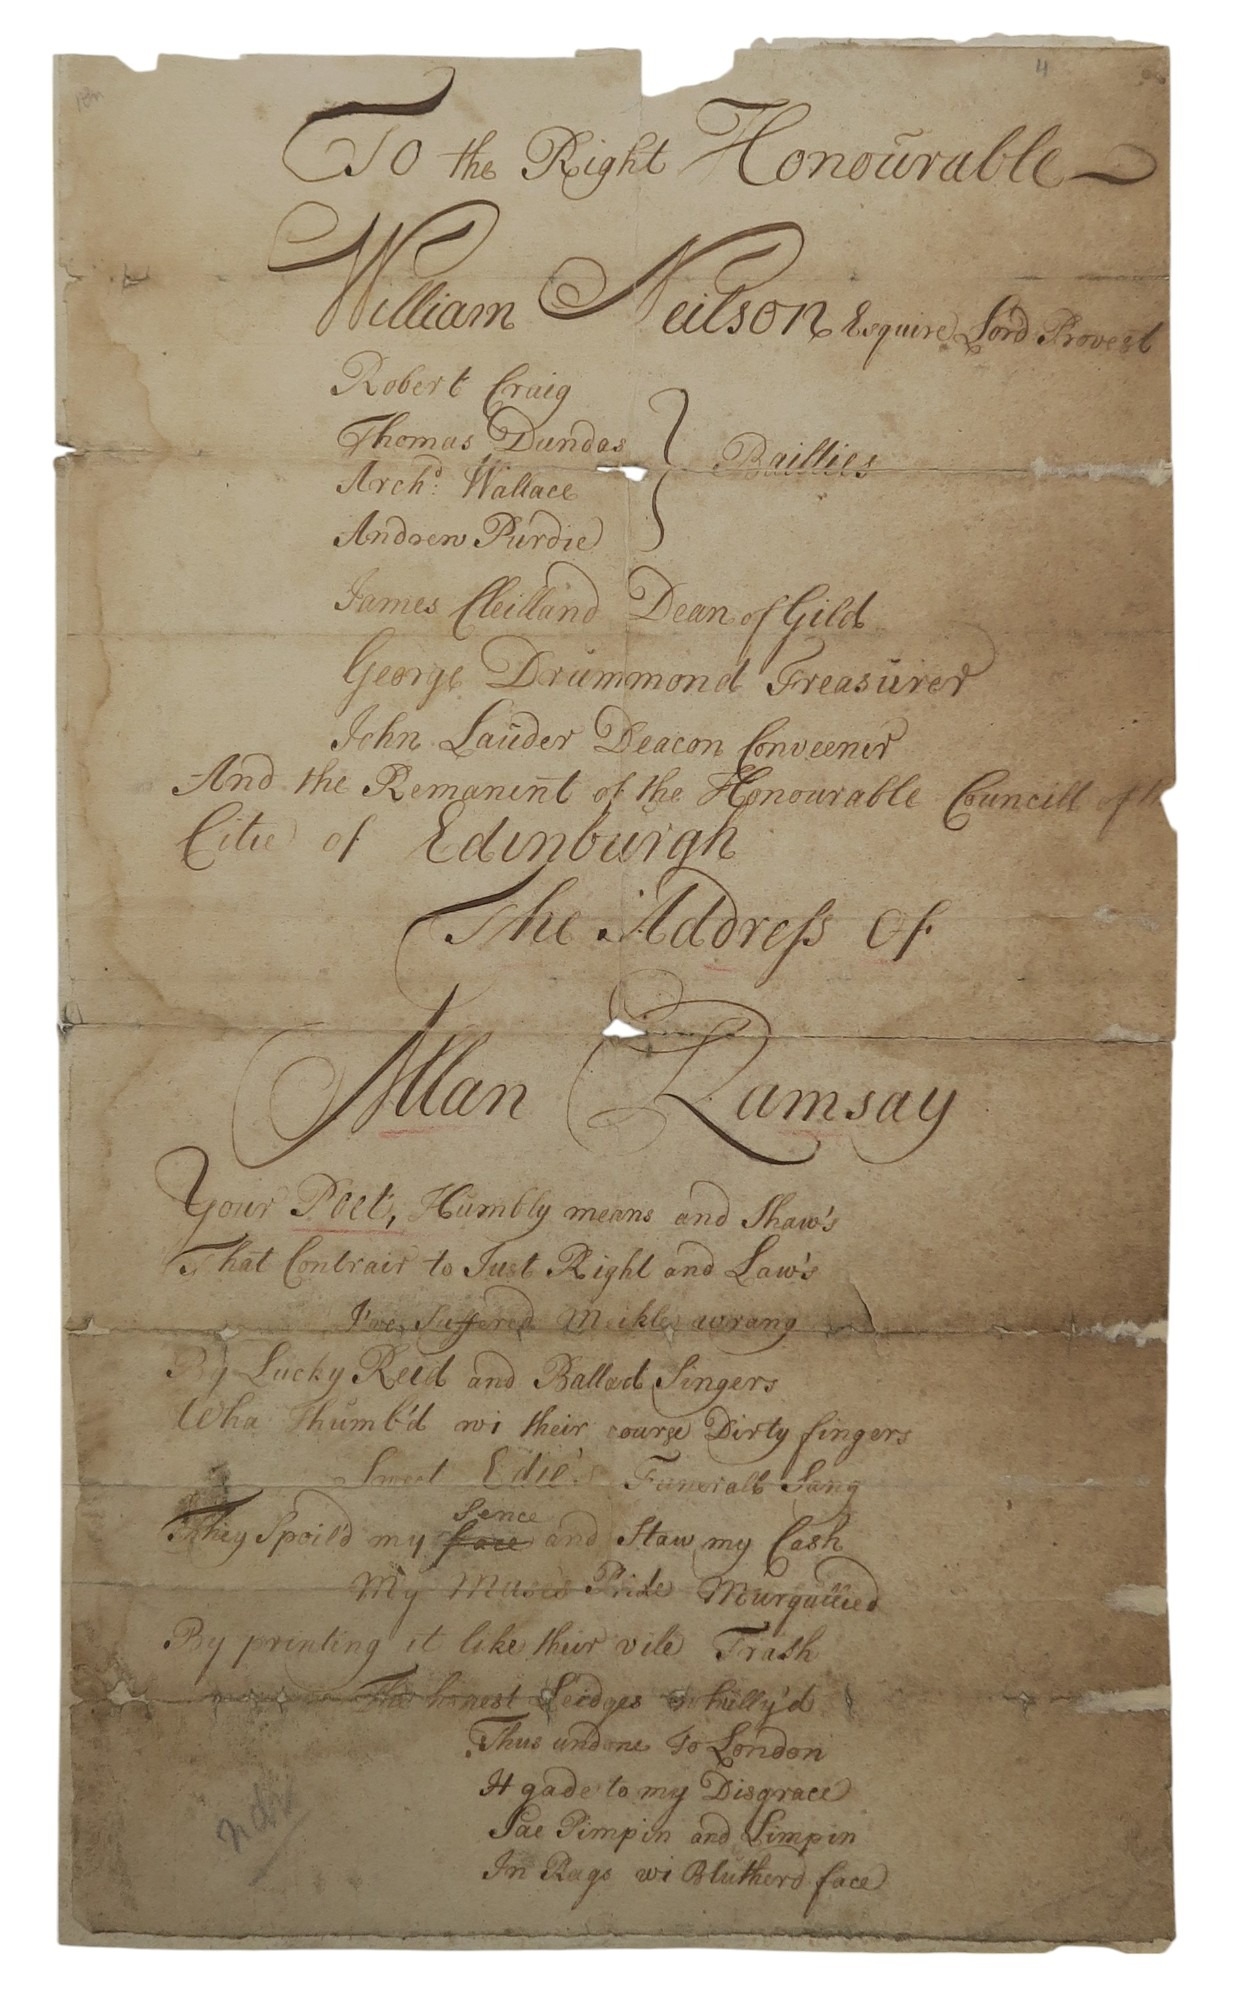 4
To the Right Honourable
William Neilson Esquire Lord Provest
Robert Craig
Thomas Dundas
Archd: Wallace
Andrew Purdie
Baillies
James Cleilland Dean of Gild
George Drummond Treasurer
John Lauder Deacon Conveener
And the Remanent of the Honourable Councill of
Citie of Edinburgh
The Address Of
Allan Ramsay
Your Poet, Humbly means and Shaw's
That Contrair to Just Right and Law's
I've Suffered Meikle wrang
By Lucky Reid and Ballad Singers
Wha Thumb'd wi their coarse Dirty fingers
Sweet Edie's Funerall Sang
They Spoil'd my face Sence and Staw my Cash
My Muse's Pride Murgullied
By printing it like their vile Trash
The honest Leidges whilly'd
Thus undone To London
It gade to my Disgrace
Sae Pimpin and Limpin
In Rags wi Blutherd face